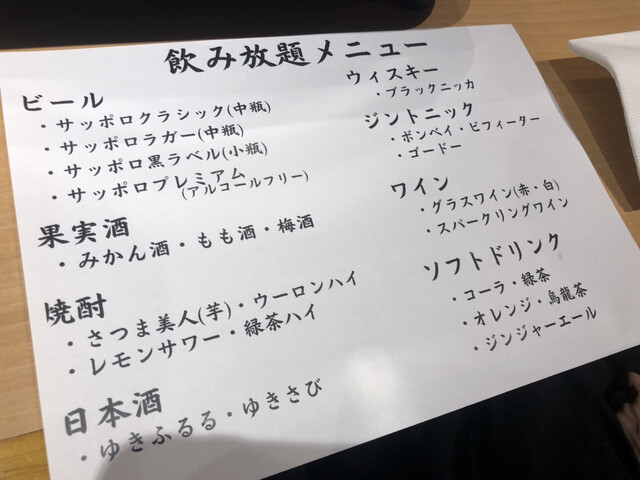 飲み放題メニュー
ビール
・サッポロクラシック(中瓶)
・サッポロラガー(中瓶)
・サッポロ黒ラベル(小瓶)
・サッポロプレミアム
(アルコールフリー)
果実酒
・みかん酒・もも酒・梅酒
焼酎
・さつま美人(芋)・ウーロンハイ
・レモンサワー・緑茶ハイ
日本酒
・ゆきふるる・ゆきさび
ウィスキー
・ブラックニッカ
ジントニック
・ボンベイ・ビフィーター
・ゴードー
ワイン
・グラスワイン(赤・白)
・スパークリングワイン
ソフトドリンク
・コーラ・緑茶
・オレンジ・烏龍茶
・ジンジャーエール